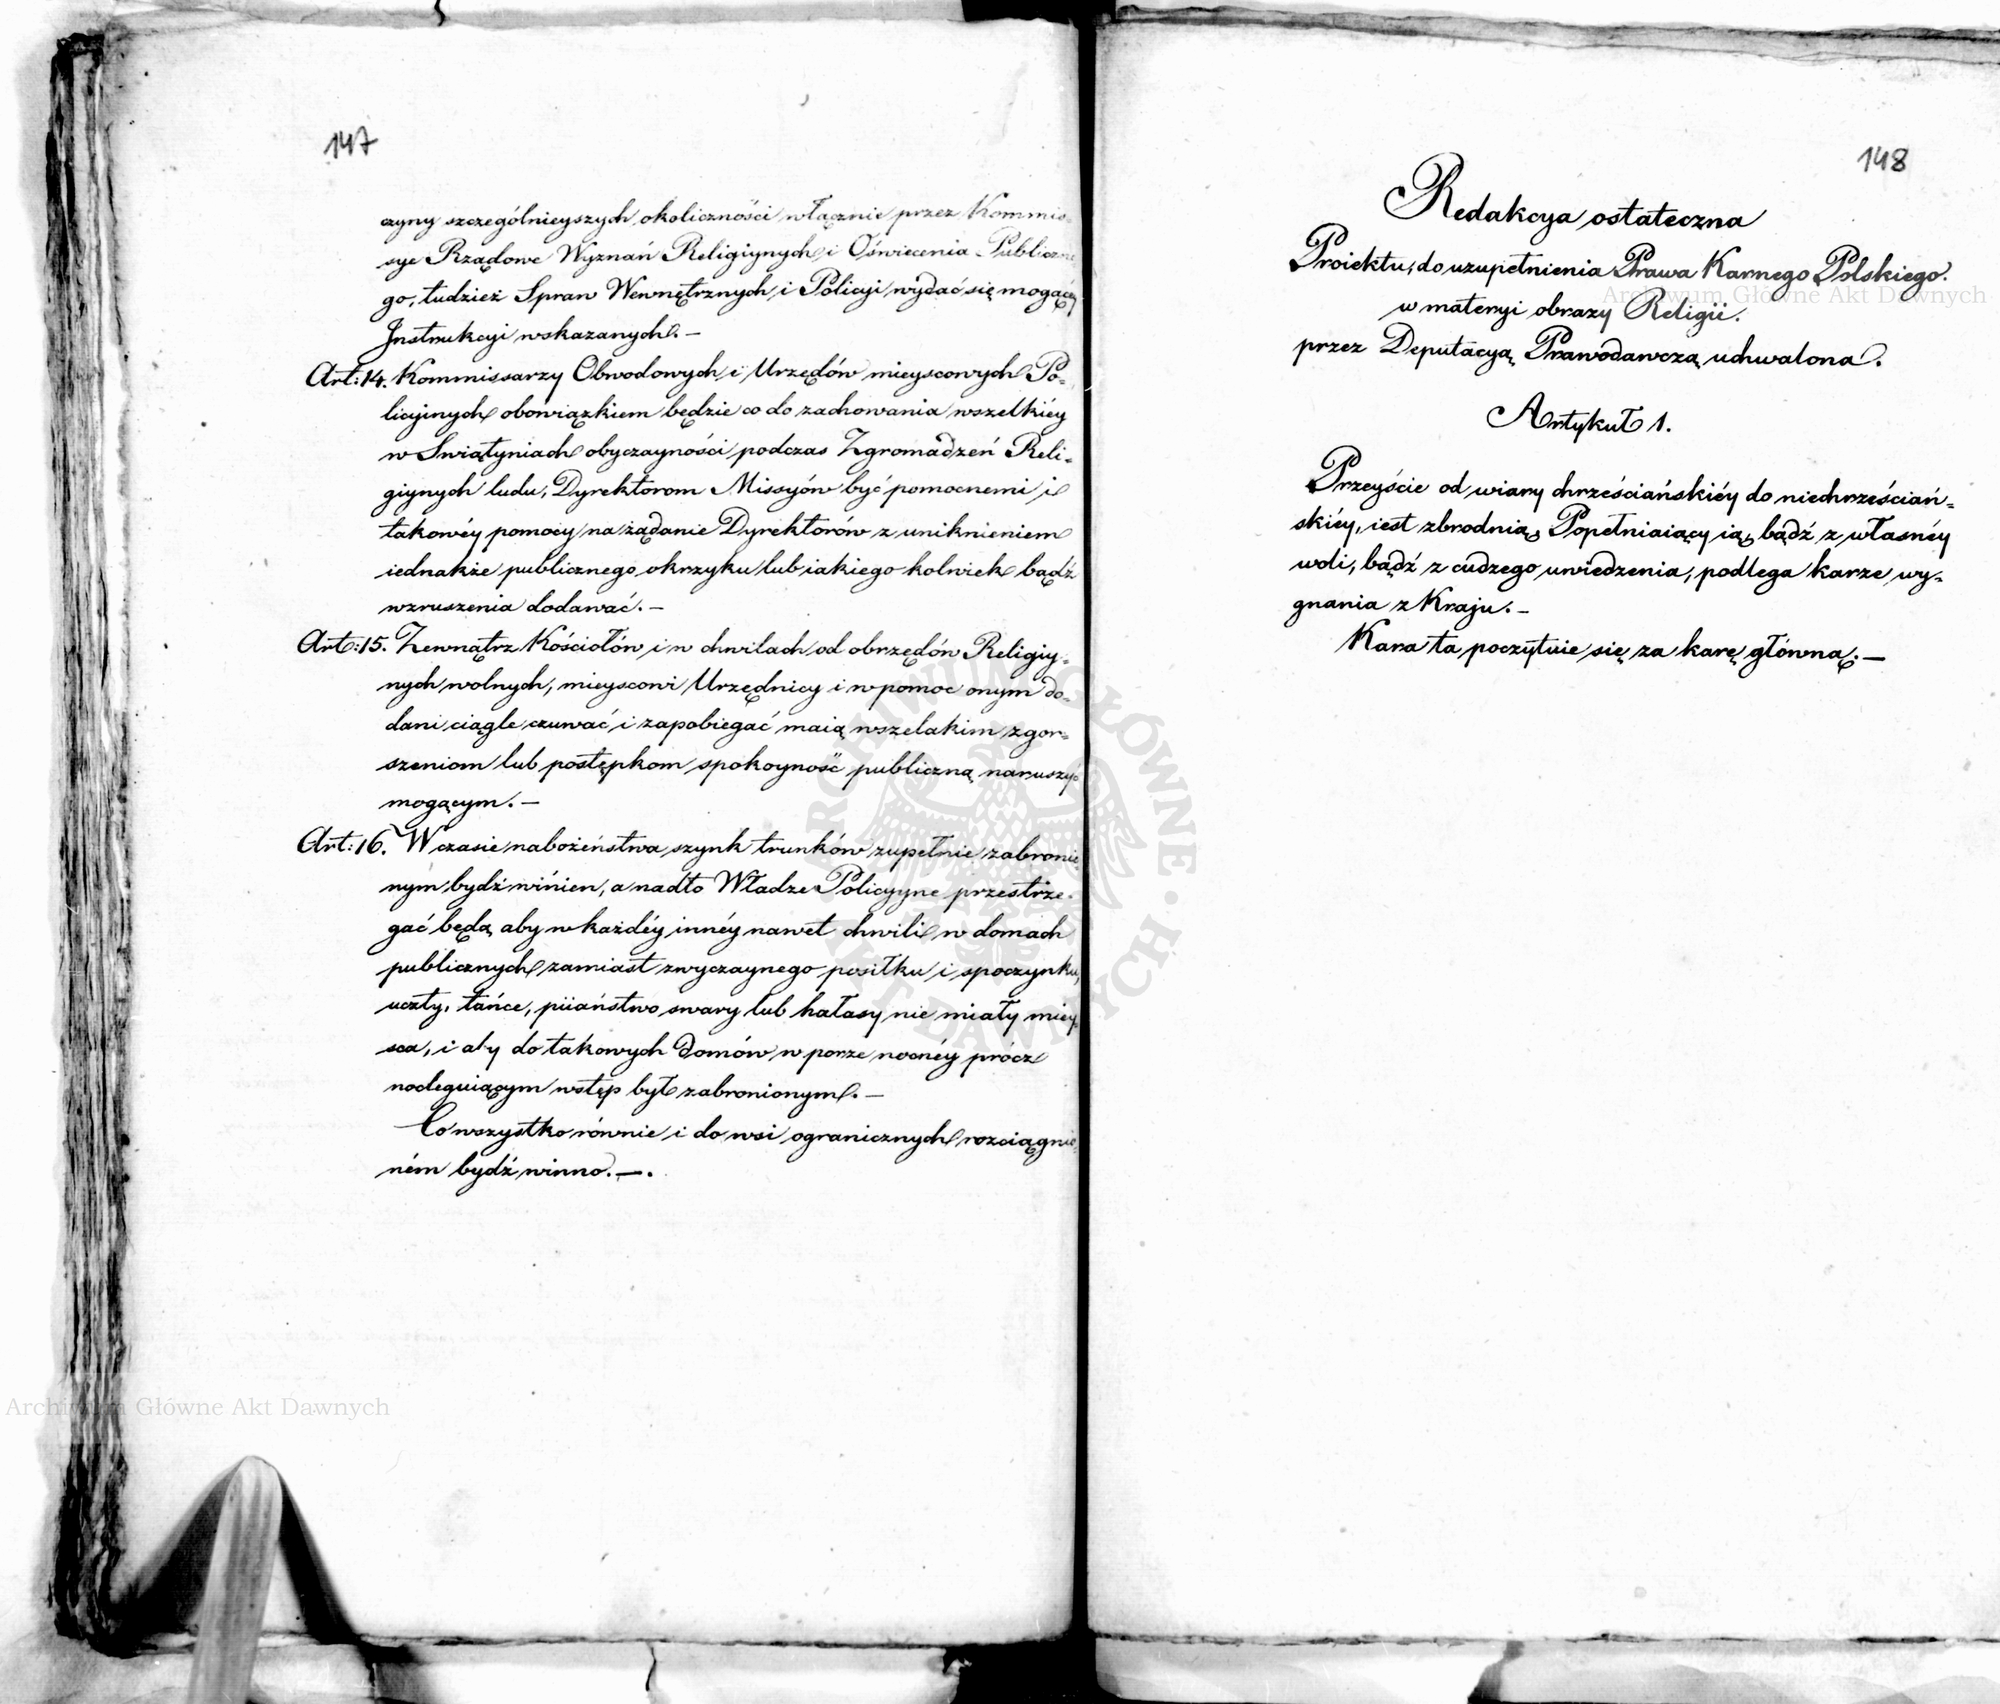 147
czyny szczególnieyszych okoliczności włącznie przez Kommis-
sye Rządowe Wyznań Religiynych i Oświecenia Publiczne
go, tudzież Spraw Wewnętrznych i Policyi wydać się mogącey
Instrukcyi wskazanych. —
Art: 14. Kommissarzy Obwodowych i Urzędów mieyscowych Po-
licyinych obowiązkiem będzie co do zachowania wszelkiéy
w Swiątyniach obyczayności podczas Zgromadzeń Reli-
giynych ludu, Dyrektorom Missyów być pomocnemi i
takowéy pomocy na żądanie Dyrektorów z uniknieniem
iednakże publicznego okrzyku lub iakiego kolwiek bądź
wzruszenia dodawać. —
Art: 15. Zewnątrz Kościołów i w chwilach od obrzędów Religiy-
nych wolnych, mieyscowi Urzędnicy i w pomoc onym do-
dani ciągle czuwać i zapobiegać maią wszelakim zgor-
szeniom lub postępkom spokoyność publiczną naruszyć
mogącym. —
Art: 16. W czasie nabożeństwa szynk trunków zupełnie zabronio
nym bydź winien, a nadto Władze Policyyne przestrze-
gać będą aby w każdéy innéy nawet chwili w domach
publicznych zamiast zwyczaynego posiłku i spoczynku,
uczty, tańce, piiaństwo swary lub hałasy nie miały miey-
sca, i aby do takowych domów w porze nocnéy prócz
nocleguiącym wstęp był zabronionym. —
Co wszystko równie i do wsi ogranicznych rozciągnio-
ném bydź winno. —.
148
Redakcya ostateczna
Proiektu, do uzupełnienia Prawa Karnego Polskiego.
w materyi obrazy Religii.
przez Deputacyą Prawodawczą uchwalona.
Artykuł 1.
Przeyście od wiary chrześciańskiéy do niechrześciań-
skiéy, iest zbrodnią, Popełniaiący ią, bądź z własnéy
woli, bądź z cudzego uwiedzenia, podlega karze wy-
gnania z Kraju. —
Kara ta poczytuie się za karę główną. —
Archiwum Główne Akt Dawnych
Archiwum Główne Akt Dawnych
ARCHIWUM GŁÓWNE AKT DAWNYCH